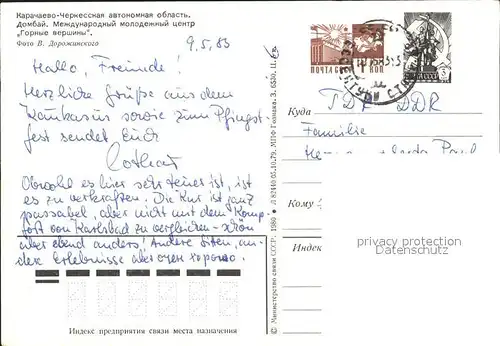 Карачаево-Черкесская автономная область.
Домбай. Международный молодежный центр
„Горные вершины".
Фото В. Дорожинского
9.5.83
Hallo, Freunde!
Herzliche Grüße aus dem
Kaukasus sowie zum Pfingst-
fest sendet Euch
Lothar
Obwohl es hier sehr teuer ist, ist
es zu verkraften. Die Kur ist ganz
passabel, aber nicht mit dem Komp-
fort von Karlsbad zu vergleichen - schön
aber ebend anders! Andere Sitten, an-
dere Erlebnisse aber очен хорошо.
Индекс предприятия связи места назначения
© Министерство связи СССР. 1980
З. 6530. Ц.
ПОЧТА СССР
КОП
СССР
Куда
TDF DDR
Familie
Кому
Индекс
privacy protection
Datenschutz